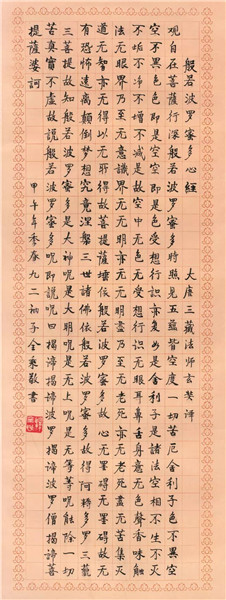 般若波羅蜜多心經 大唐三藏法师玄奘譯
观自在菩薩行深般若波羅蜜多時照見五蕴皆空度一切苦厄舍利子色不異空
空不異色色即是空空即是色受想行識亦复如是舍利子是諸法空相不生不灭
不垢不净不增不减是故空中无色无受想行識无眼耳鼻舌身意无色聲香味触
法无眼界乃至无意識界无无明亦无无明盡乃至无老死亦无老死盡无苦集灭
道无智亦无得以无所得故菩提薩埵依般若波羅蜜多故心无罣碍无罣碍故无
有恐怖遠离颠倒梦想究竟涅槃三世諸佛依般若波羅蜜多故得阿耨多羅三藐
三菩提故知般若波羅蜜多是大神呪是大明呪是无上呪是无等等呪能除一切
苦真實不虚故說般若波羅蜜多呪即說呪曰揭諦揭諦波羅揭諦波羅僧揭諦菩
提薩婆訶 甲午年季春九二衲子金乘敬書